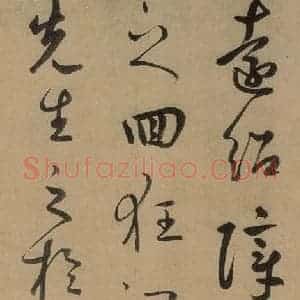 遠紹障
之回狂
先生之於
Shufaziliao.COM